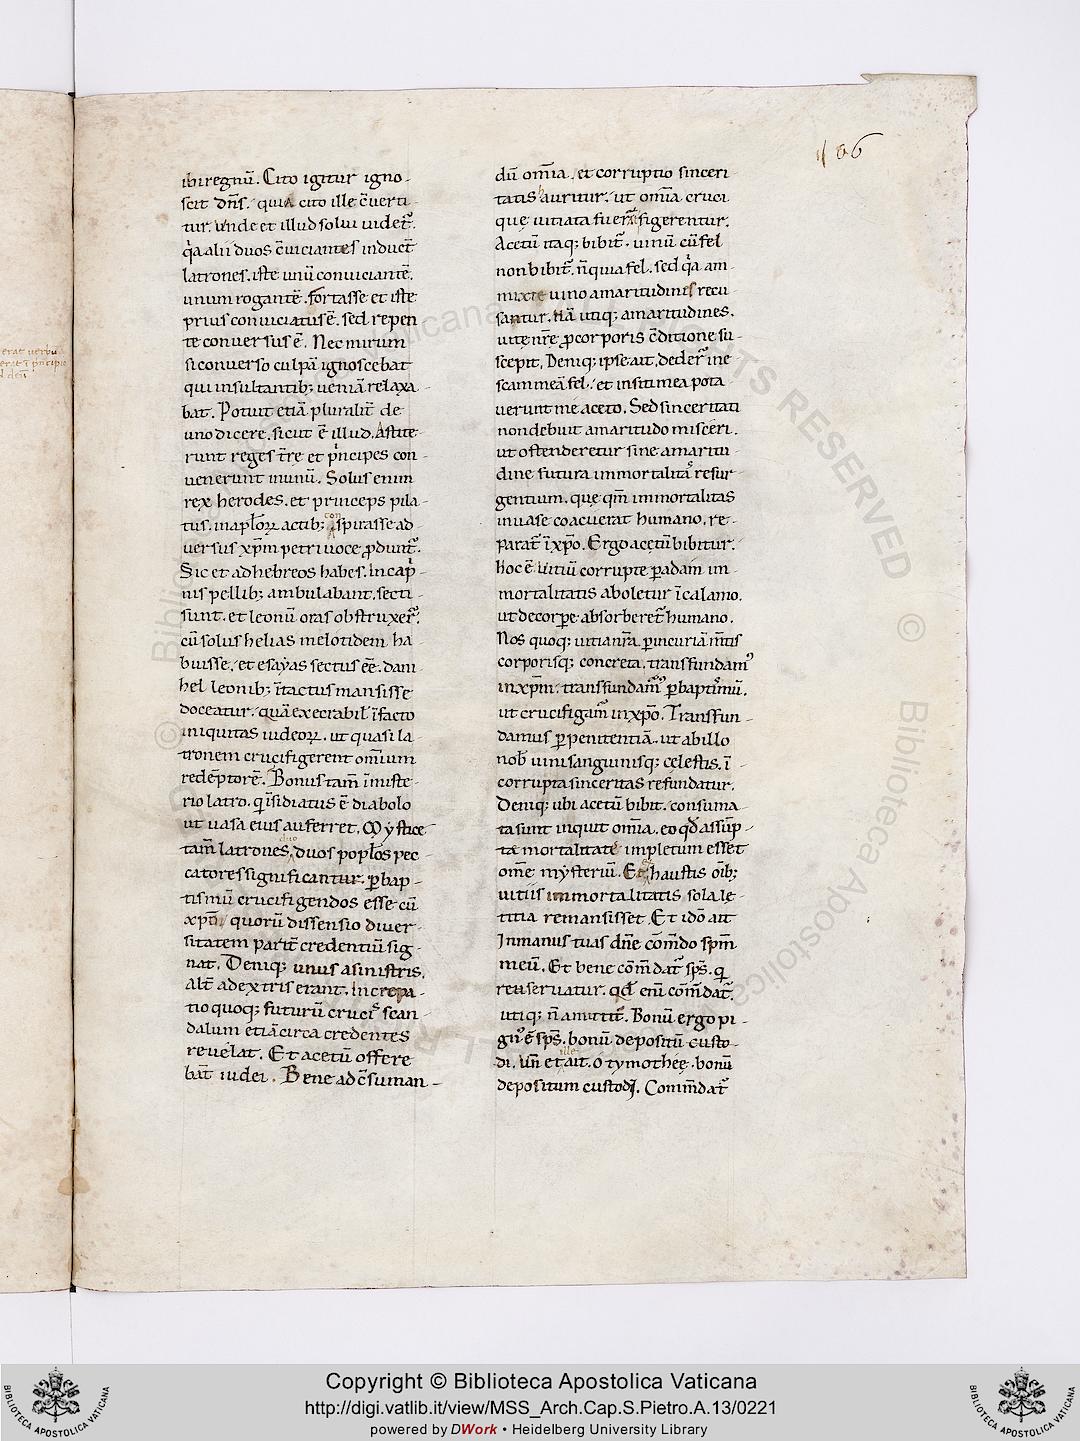 106
ibi regnū. Cito igitur igno-
scit dn̄s. quia cito ille c̄verti-
tur. Unde et illud solui videt᷑.
q̓a alii duos c̄viciantes induct̄
latrones. iste unū conviciantē.
unum rogantē. fortasse et iste
prius conviciatus ē. sed repen
te conversus ē. Nec mirum
si converso culpā ignoscebat
qui insultantib; veniā relaxa
bat. Potuit etiā pluralit̄ de
uno dicere. sicut ē illud. Astite-
runt reges tr̄e et pͥncipes con-
venerunt in unū. Solus enim
rex herodes. et princeps pila-
tus. in ap̄loꝝ actib; conspirasse ad-
versus xp̄m petri voce ꝓdunt᷑.
Sic et ad hebreos habes. in capͥ-
nis pellib; ambulabant. secti-
sunt. et leonū oras obstruxer᷑.
cū solus helias melotidem ha-
buisse. et esayas sectus eē. dani-
hel leonib; ītactus mansisse
doceatur. quā execrabil̄ īfacto
iniquitas iudeoꝝ. ut quasi la-
tronem crucifigerent omīum
redēptorē. Bonus tam̄ ī miste-
rio latro. qͥ īsidiatus ē diabolo
ut vasa eius auferret. Mystice
tam̄ latrones duo duos popl̄os pec
catores significantur. ꝑ bap-
tismū crucifigendos esse cū
xp̄o quorū dissensio diver-
sitatem parit̄ credentiū sig-
nat. Deniq; unus a sinistris.
alt̄ a dextris erant. Increpa-
tio quoq; futurū crucis scan-
dalum etiā circa credentes
revelat. Et acetū offere
bāt iudei. Bene ad c̄suman-
dū omīa. et corruptio sinceri-
tatis hauritur. ut omīa cruci
quę vitiata fuer᷑ figerentur.
Acetū itaq; bibit᷑. vinū cū fel
non bibit᷑. n̄ quia fel. sed q̓a am-
mixte vino amaritudinis recu-
santur. Nā utiq; amaritudines.
vitę nr̄e ꝓ corporis c̄ditione su-
scepit. Deniq; ipse ait. deder᷑ in e-
scam meā fel. et in siti mea pota-
verunt me aceto. Sed sinceritati
non debuit amaritudo misceri.
ut ostenderetur sine amaritu-
dine futura immortalitaˢ resur-
gentium. quę qm̄ immortalitas
in vase coacuerat humano. re-
parat᷑ ī xp̄o. Ergo acetū bibitur.
hoc ē vitiū corrupte ꝑ adam im-
mortalitatis aboletur ī calamo.
ut de corꝑe absorberet᷑ humano.
Nos quoq; vitia nr̄a. ꝑ incuriā m̄tis
corporisq; concreta. transfundamꝰ
in xp̄m. transfundamꝰ ꝑ baptismū.
ut crucifigamꝰ in xp̄o. Transfun-
damus ꝑ penitentiā. ut ab illo
nob̄ vini sanguinisq; celestis. ī-
corrupta sinceritas refundatur.
Deniq; ubi acetū bibit. consuma-
ta sunt inquit omīa. eo qđ assūp-
tę mortalitatę impletum esset
om̄e mysteriū. Et exhaustis oīb;
vitiis immortalitatis sola le-
titia remansisset. Et idō ait
In manus tuas dn̄e com̄do spm̄
meū. Et bene com̄dat᷑ sp̄s. qͥ
reservatur. qđ eni᷑ com̄dat᷑.
utiq; n̄ amittit᷑. Bonū ergo pi-
gnꝰ ē sp̄s. bonū depositū custo-
di. Un̄ et ille ait. o tymotheę. bonū
depositum custodi. Com̄dat᷑
erat verbu
Copyright © Biblioteca Apostolica Vaticana
http://digi.vatlib.it/view/MSS_Arch.Cap.S.Pietro.A.13/0221
powered by DWork • Heidelberg University Library
BIBLIOTECA APOSTOLICA VATICANA
BIBLIOTECA APOSTOLICA VATICANA